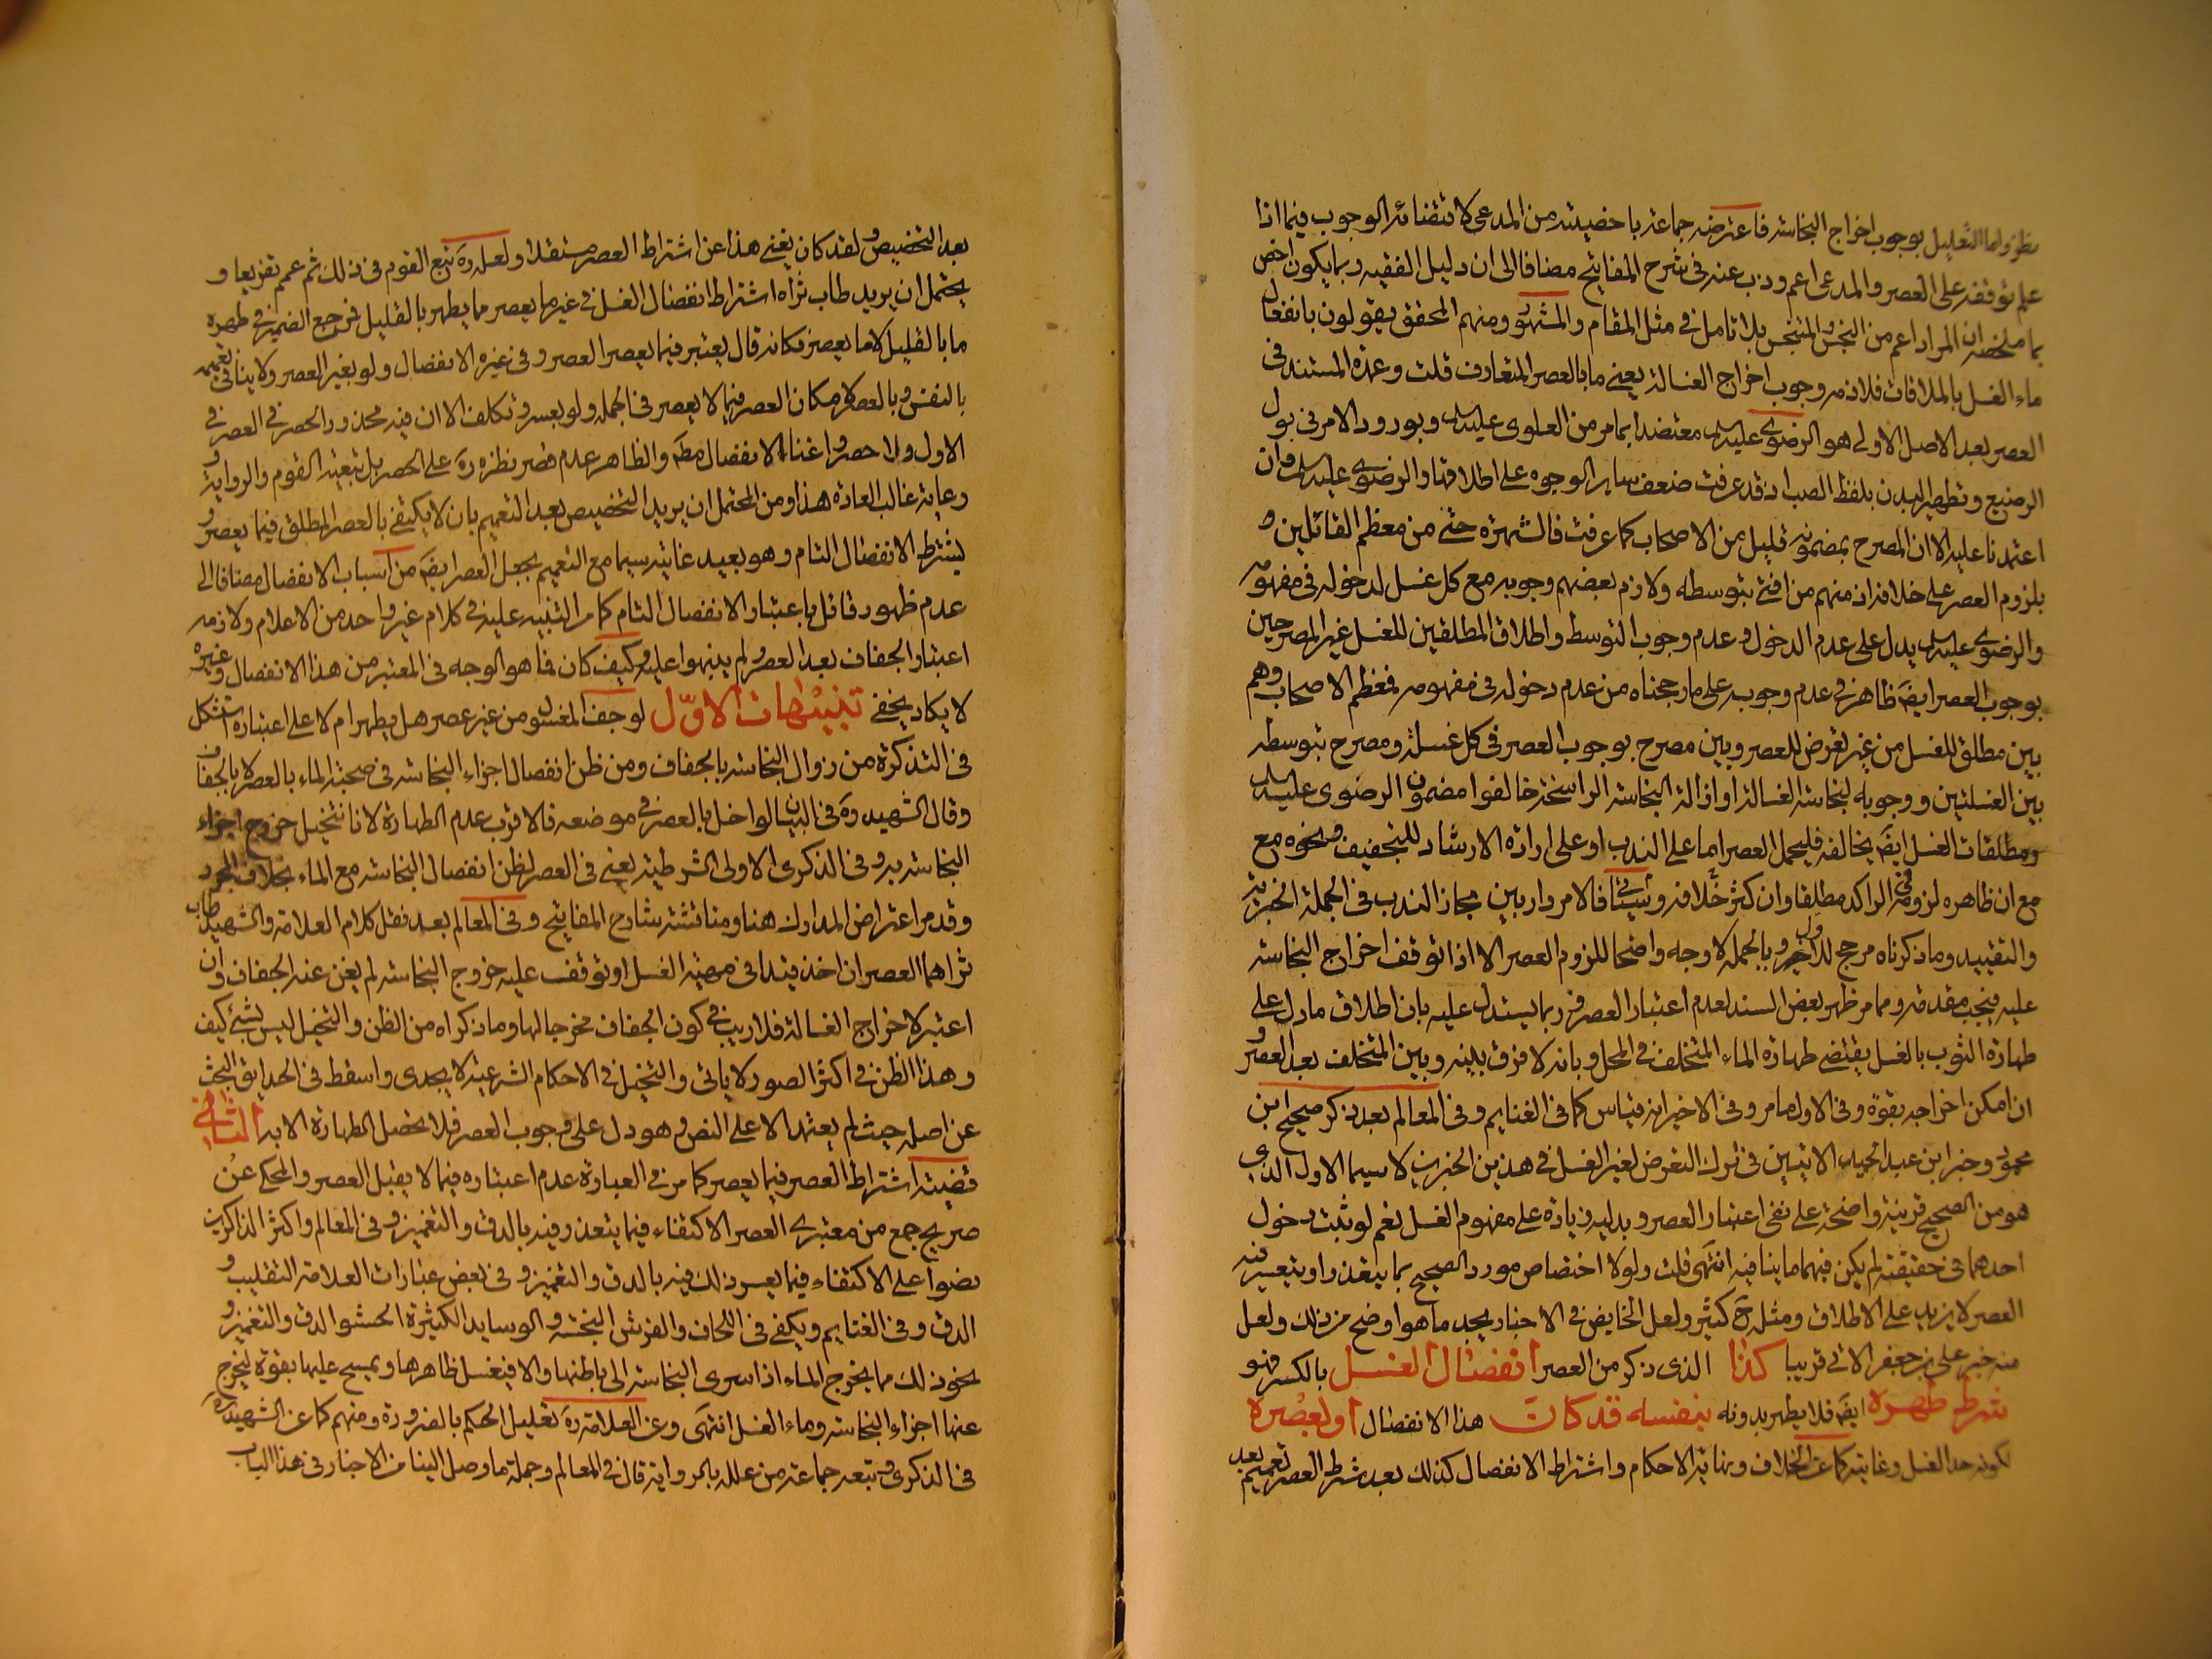 نظر واما التعليل بوجوب اخراج النجاسة فاعترضه جماعة باخصيته من المدعى لاقتضائه الوجوب فيما اذا
علم توقفه على العصر والمدعى اعم وذب عنه في شرح المفاتيح مضافا الى ان دليل الفقيه ربما يكون اخص
بما ملخصه ان المراد اعم من النجس والمتنجس بلا تامل في مثل المقام والمشهور ومنهم المحقق يقولون بانفعال
ماء الغسل بالملاقات فلازمه وجوب اخراج الغسالة يعني ما بالعصر المتعارف قلت وعمدة المستند في
العصر بعد الاصل الاولى هو الرضوي عليه السلام معتضدا بما مر من العلوي عليه السلام وبورود الامر في بول
الرضيع وتطهير البدن بلفظ الصب اذ قد عرفت ضعف ساير الوجوه على اطلاقها والرضوي عليه السلام وان
اعتمدنا عليه الا ان المصرح بمضمونه قليل من الاصحاب كما عرفت فالشهرة حتى من معظم القائلين و
بلزوم العصر على خلافه اذ منهم من افتى بتوسطه ولازم بعضهم وجوبه مع كل غسل لدخوله في مفهومه
والرضوي عليه السلام يدل على عدم الدخول وعدم وجوب التوسط واطلاق المطلقين للغسل غير المصرحين
بوجوب العصر ايضا ظاهر في عدم وجوبه على ما رجحناه من عدم دخوله في مفهومه فمعظم الاصحاب وهم
بين مطلق للغسل من غير تعرض للعصر وبين مصرح بوجوب العصر في كل غسلة ومصرح بتوسطه
بين الغسلتين ووجوبه لنجاسة الغسالة او ازالة النجاسة الراسخة خالفوا مضمون الرضوي عليه السلام
ومطلقات الغسل ايضا يخالفه فليحمل العصر اما على الندب او على ارادة الارشاد للتجفيف ونحوه مع
مع ان ظاهره لزومه في الراكد مطلقا وان كثر خلافه وسياتي فالامر دار بين مجاز الندب في الجملة الخبرية
والتقييد وما ذكرناه مرجح للاول وبالجملة لا وجه واضحا للزوم العصر الا اذا توقف اخراج النجاسة
عليه فيجب مقدمة ومما مر ظهر بعض السند لعدم اعتبار العصر فربما يستدل عليه بان اطلاق ما دل على
طهارة الثوب بالغسل يقتضي طهارة الماء المتخلف في المحل وبانه لا فرق بينه وبين المتخلف بعد العصر و
ان امكن اخراجه بقوة وفي الاول ما مر وفي الاخير انه قياس كما في الغنايم وفي المعالم بعد ذكر صحيح ابن
محمود وخبر ابن عبد الحميد الاتيين في ترك التعرض لغير الغسل في هذين الخبرين لا سيما الاول الذي
هو من الصحيح قرينة واضحة على نفي اعتبار العصر وبدليه زيادة على مفهوم الغسل نعم لو ثبت دخول
احدهما في حقيقته لم يكن فيهما ما ينافيه انتهى قلت ولولا اختصاص مورد الصحيح بما يتعذر او يتعسر فيه
العصر لا يزيد على الاطلاق ومثله ح كثير ولعل الخايض في الاخبار يجد ما هو اوضح من ذلك ولعل
منه خبر علي بن جعفر الاتي قريبا كذا الذي ذكر من العصر انفصال الغسل بالكسر فهو
شرط طهره ايضا فلا يطهر بدونه بنفسه قد كان هذا الانفصال او لعصره
لكونه حد الغسل وغايته كما عن الخلاف ونهاية الاحكام واشتراط الانفصال كذلك بعد شرط العصر تعميم بعد
بعد التخصيص ولقد كان يغني هذا عن اشتراط العصر مستقلا ولعله ره تبع القوم في ذلك ثم عمم تفريعا و
يحتمل ان يريد طاب ثراه اشتراط انفصال الغسل في غير ما يعصر مما يطهر بالقليل فمرجع الضمير في طهره
ما بالقليل لا ما يعصر فكانه قال يعتبر فيما يعصر العصر وفي غيره الانفصال ولو بغير العصر ولا ينافي تعميمه
بالنفس وبالعصر لامكان العصر فيما لا يعصر في الجملة ولو بعسر وتكلف الا ان فيه محذور الحصر في العصر في
الاول ولا حصر واغناء الانفصال مطلقا والظاهر عدم قصر نظره ره على الحصر بل تبعية القوم والرواية و
رعاية غالب العادة هذا ومن المحتمل ان يريد التخصيص بعد التعميم بان لا يكتفي بالعصر المطلق فيما يعصر و
يشترط الانفصال التام وهو بعيد غايته سيما مع التعميم بجعل العصر ايضا من اسباب الانفصال مضافا الى
عدم ظهور قائل باعتبار الانفصال التام كما مر التنبيه عليه في كلام غير واحد من الاعلام ولازمه
اعتبار الجفاف بعد العصر ولم ينبهوا عليه وكيف كان فما هو الوجه في المعتبر من هذا الانفصال وغيره
لا يكاد يخفى تنبيهات الاول لو جف المغسول من غير عصر هل يطهر ام لا على اعتباره استشكل
في التذكرة من زوال النجاسة بالجفاف ومن ظن انفصال اجزاء النجاسة في صحبة الماء بالعصر لا بالجفاف
وقال الشهيد ره في البيان لو اخل بالعصر في موضعه فالاقرب عدم الطهارة لانا نتخيل خروج اجزاء
النجاسة به وفي الذكرى الاولى الشرطية يعني في العصر لظن انفصال النجاسة مع الماء بخلاف المجرد
وقد مر اعتراض المدارك هنا ومناقشة شارح المفاتيح وفي المعالم بعد نقل كلام العلامة والشهيد طاب
ثراهما العصر ان اخذ قيدا في مهية الغسل او توقف عليه خروج النجاسة لم يغن عنه الجفاف وان
اعتبر لاخراج الغسالة فلا ريب في كون الجفاف مخرجا لها وما ذكراه من الظن والتخيل ليس بشيء كيف
وهذا الظن في اكثر الصور لا ياتي والتخيل في الاحكام الشرعية لا يجدي واسقط في الحدايق البحث
عن اصله حيث لم يعتمد الا على النص وهو دل على وجوب العصر فلا تحصل الطهارة الا به الثاني
قضية اشتراط العصر فيما يعصر كما مر في العبارة عدم اعتباره فيما لا يقبل العصر والمحكي عن
صريح جمع من معتبري العصر الاكتفاء فيما يتعذر فيه بالدق والتغميز وفي المعالم واكثر الذاكرين
نصوا على الاكتفاء فيما يعسر ذلك فيه بالدق والتغميز وفي بعض عبارات العلامة التقليب و
الدق وفي الغنايم ويكفي في اللحاف والفرش النجسة والوسايد الكثيرة الحشو الدق والتغميز و
نحو ذلك مما يخرج الماء اذا سرى النجاسة الى باطنها والا فيغسل ظاهرها ويمسح عليها بقوة ليخرج
عنها اجزاء النجاسة وماء الغسل انتهى وعن العلامة ره تعليل الحكم بالضرورة ومنهم كما عن الشهيد ره
في الذكرى وتبعه جماعة من علله بالرواية قال في المعالم وجملة ما وصل الينا من الاخبار في هذا الباب